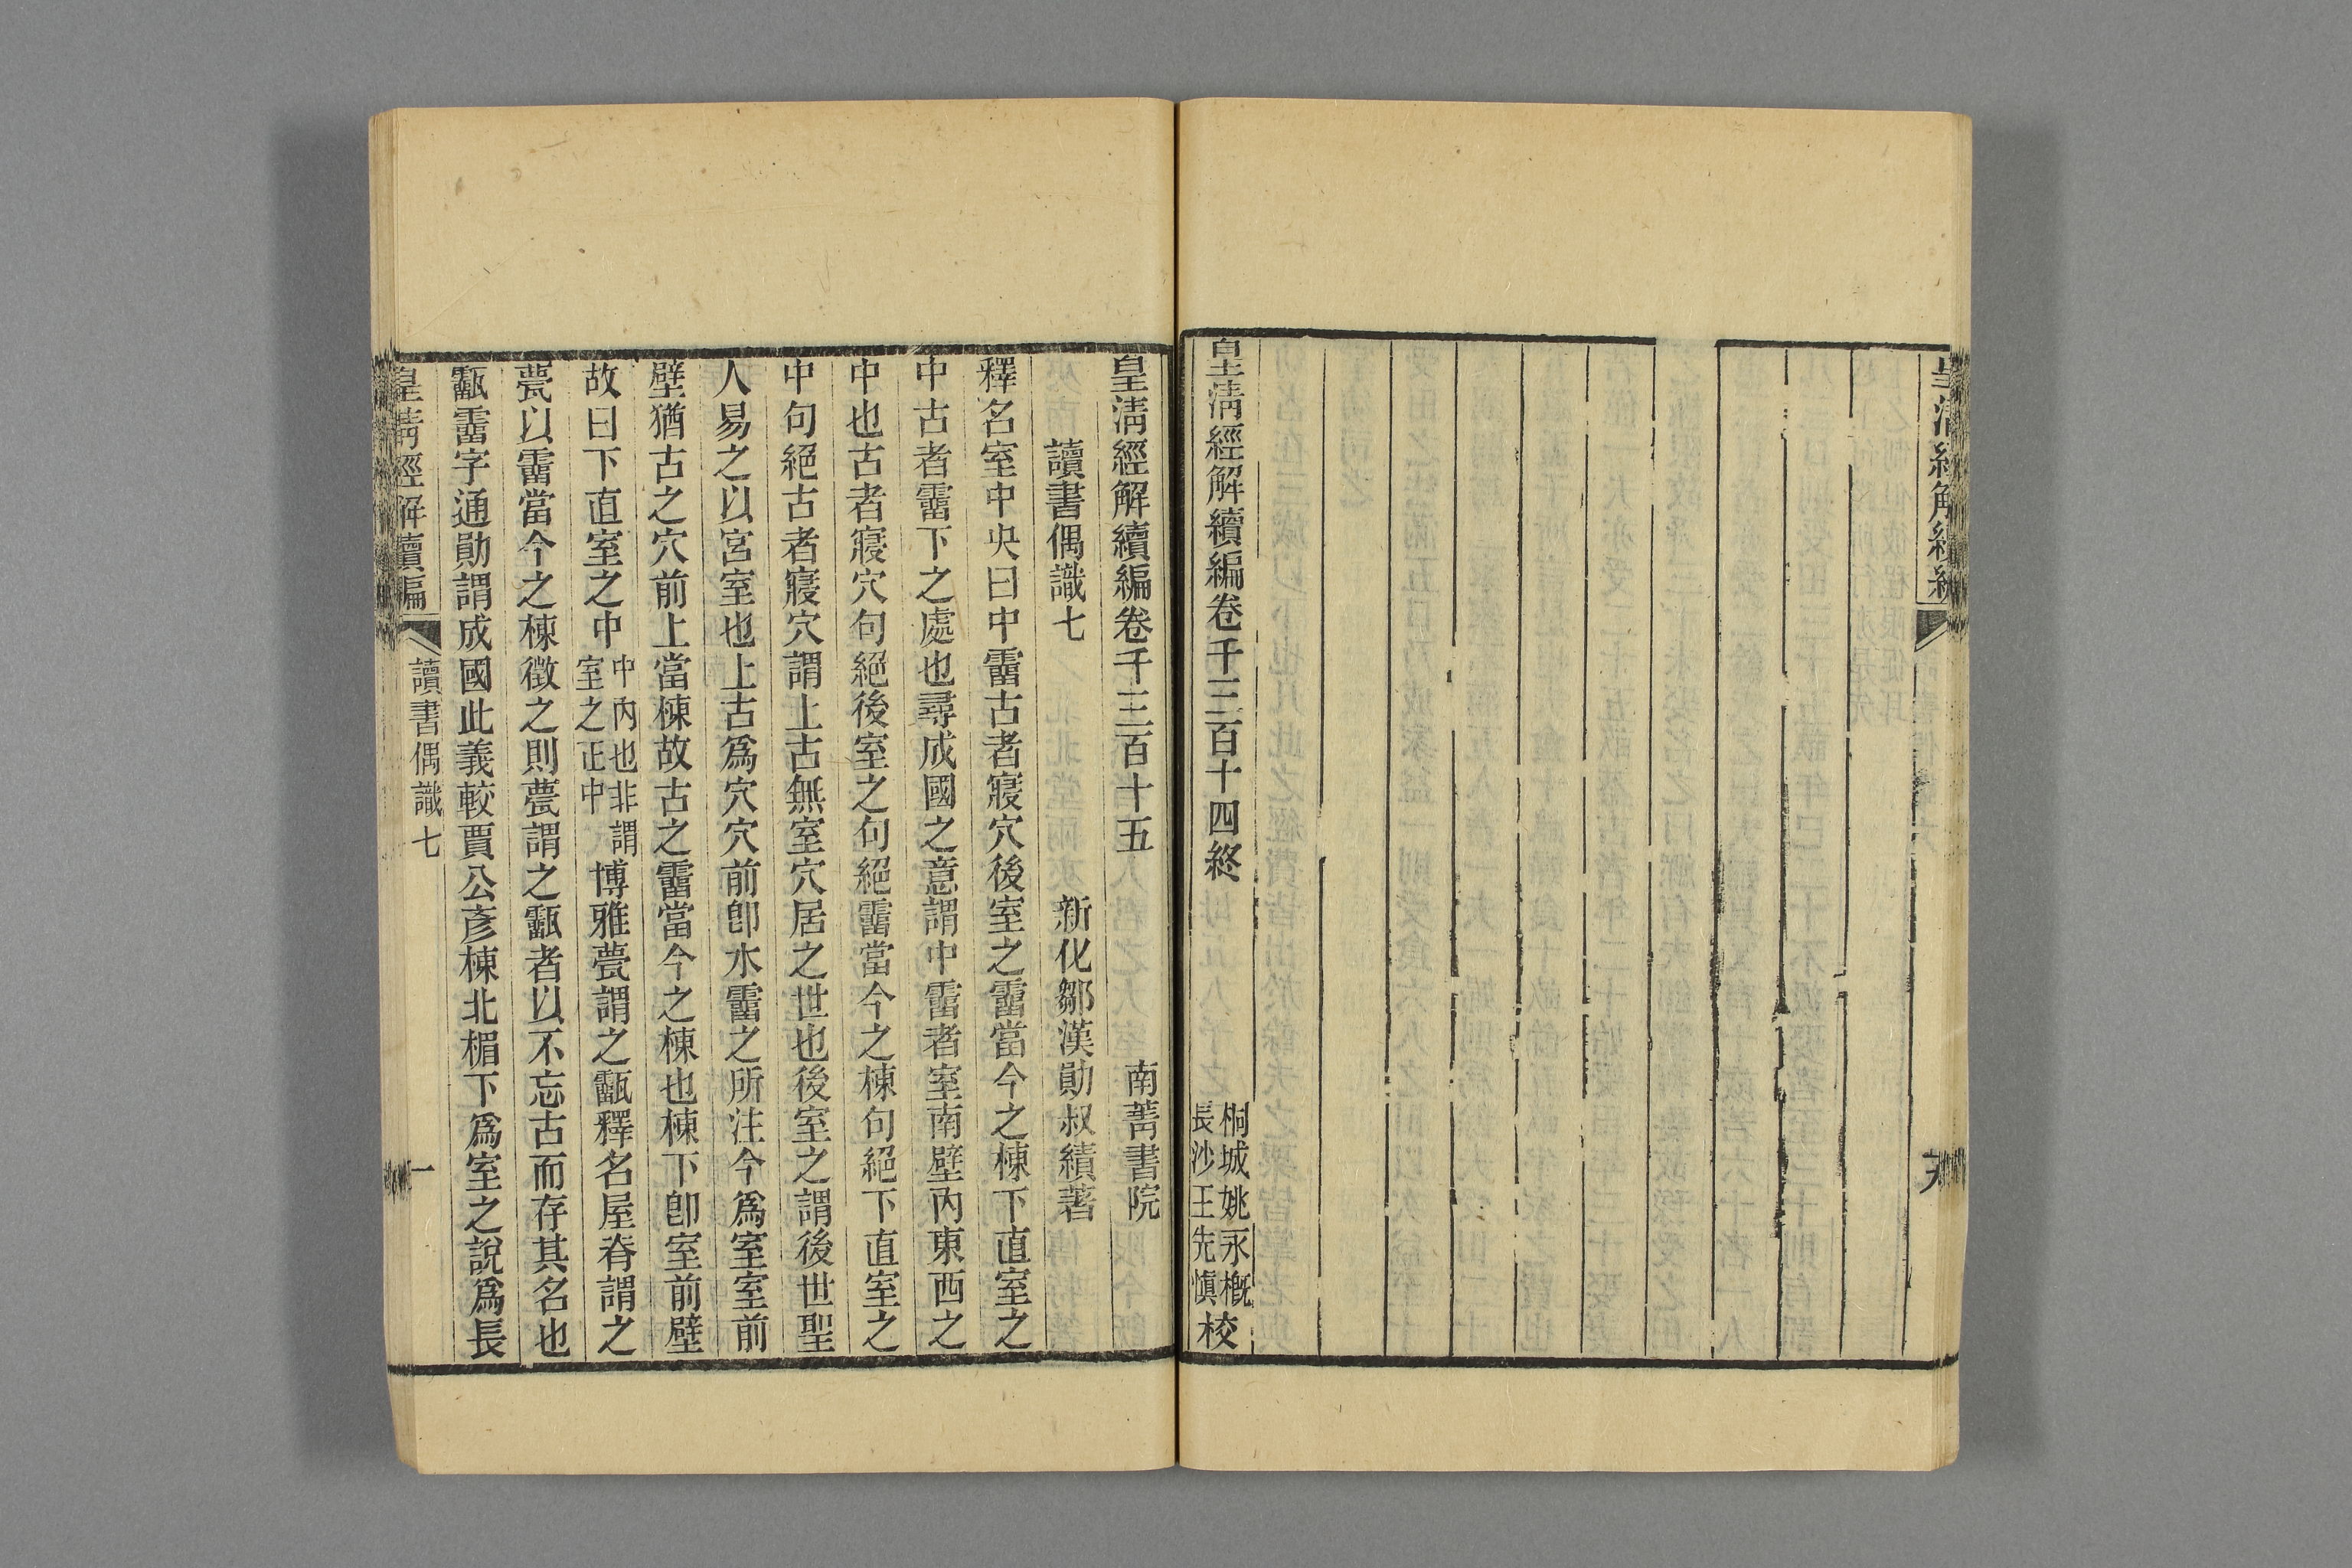 皇清經解續編卷千三百十四終
桐城姚永概
長沙王先愼
校
皇清經解續編卷千三百十五
南菁書院
讀書偶識七
新化鄒漢勛叔績著
釋名室中央曰中霤古者寢穴後室之霤當今之棟下直室之
中古者霤下之處也尋成國之意謂中霤者室南壁內東西之
中也古者寢穴句絕後室之句絕霤當今之棟句絕下直室之
中句絕古者寢穴謂上古無室穴居之世也後室之謂後世聖
人易之以宮室也上古爲穴穴前卽水霤之所注今爲室室前
壁猶古之穴前上當棟故古之霤當今之棟也棟下卽室前壁
故曰下直室之中
中內也非謂
室之正中
博雅甍謂之甑釋名屋脊謂之
甍以霤當今之棟徵之則甍謂之甑者以不忘古而存其名也
甑霤字通勛謂成國此義較賈公彥棟北楣下爲室之說爲長
皇清經解續編
讀書偶識七
一